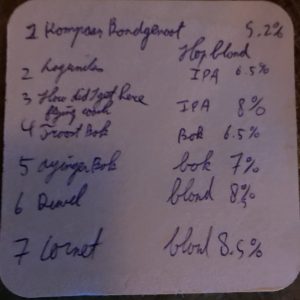 1 Kompaan Bondgenoot 5.2%
Hop blond
2 Lagunitas IPA 6.5%
3 How did I get here IPA 8%
flying couch
4 Troost Bok Bok 6.5%
5 ayinger Bok bok 7%
6 Duvel blond 8%
7 Cornet blond 8.5%